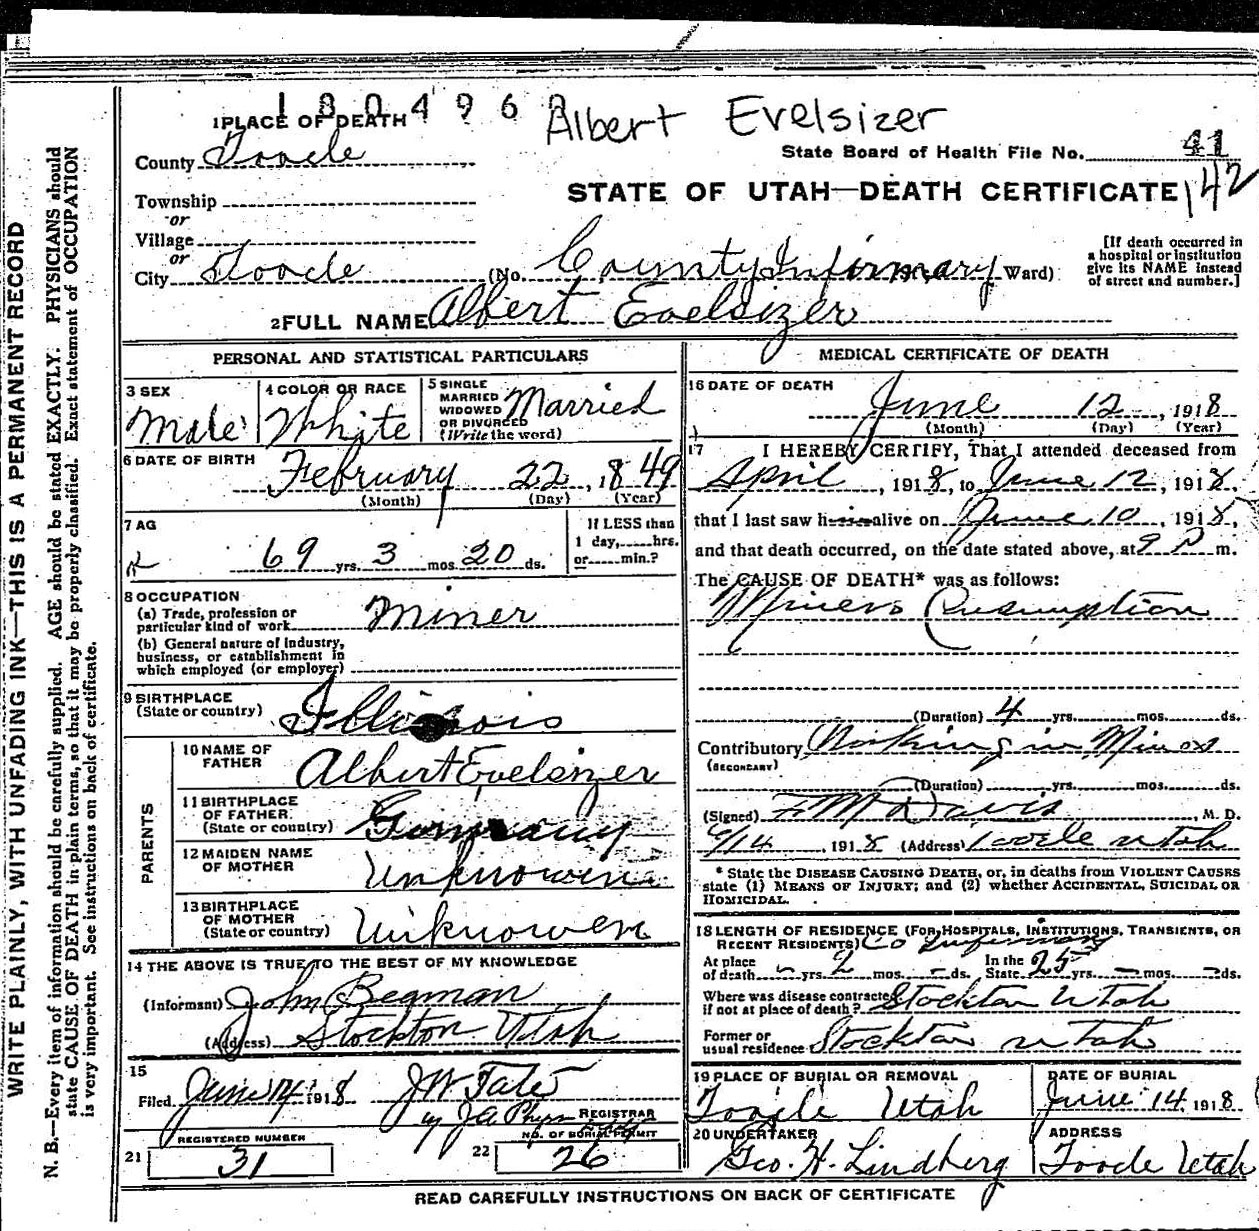 180496
Albert Evelsizer
1 PLACE OF DEATH
County Tooele
State Board of Health File No. 41
142
Township
or
Village
or
STATE OF UTAH—DEATH CERTIFICATE
City Tooele (No. County Infirmary Ward)
[If death occurred in a hospital or institution give its NAME instead of street and number.]
2 FULL NAME Albert Evelsizer
PERSONAL AND STATISTICAL PARTICULARS
3 SEX Male
4 COLOR OR RACE White
5 SINGLE MARRIED WIDOWED OR DIVORCED (Write the word) Married
6 DATE OF BIRTH February 22, 1849
(Month) (Day) (Year)
7 AG
69 yrs. 3 mos. 20 ds.
If LESS than 1 day, hrs. or min.?
8 OCCUPATION
(a) Trade, profession or particular kind of work Miner
(b) General nature of industry, business, or establishment in which employed (or employer)
9 BIRTHPLACE (State or country) Illinois
PARENTS
10 NAME OF FATHER Albert Evelsizer
11 BIRTHPLACE OF FATHER (State or country) Germany
12 MAIDEN NAME OF MOTHER Unknowen
13 BIRTHPLACE OF MOTHER (State or country) Unknowen
14 THE ABOVE IS TRUE TO THE BEST OF MY KNOWLEDGE
(Informant) John Begman
(Address) Stockton Utah
15
Filed June 14 1918 J W Tate
by J A REGISTRAR
REGISTERED NUMBER
21 31
NO. OF BURIAL PERMIT
22 26
MEDICAL CERTIFICATE OF DEATH
16 DATE OF DEATH
June 12, 1918
(Month) (Day) (Year)
17 I HEREBY CERTIFY, That I attended deceased from
April, 1918, to June 12, 1918,
that I last saw h alive on June 10, 1918,
and that death occurred, on the date stated above, at 9 P m.
The CAUSE OF DEATH* was as follows:
Miners Consumption
(Duration) 4 yrs. mos. ds.
Contributory (SECONDARY) Working in Mines
(Duration) yrs. mos. ds.
(Signed) F M Davis, M. D.
6/14, 1918 (Address) Tooele Utah
* State the DISEASE CAUSING DEATH, or, in deaths from VIOLENT CAUSES
state (1) MEANS OF INJURY; and (2) whether ACCIDENTAL, SUICIDAL OR
HOMICIDAL.
18 LENGTH OF RESIDENCE (FOR HOSPITALS, INSTITUTIONS, TRANSIENTS, OR
RECENT RESIDENTS) Co Infirmary
At place of death - yrs. 2 mos. - ds. In the State 25 yrs. - mos. - ds.
Where was disease contracted if not at place of death? Stockton Utah
Former or usual residence Stockton Utah
19 PLACE OF BURIAL OR REMOVAL
Tooele Utah
DATE OF BURIAL
June 14 1918
20 UNDERTAKER
Geo. H. Lindberg
ADDRESS
Tooele Utah
READ CAREFULLY INSTRUCTIONS ON BACK OF CERTIFICATE
WRITE PLAINLY, WITH UNFADING INK—THIS IS A PERMANENT RECORD
N. B.—Every item of information should be carefully supplied. AGE should be stated EXACTLY. PHYSICIANS should
state CAUSE OF DEATH in plain terms, so that it may be properly classified. Exact statement of OCCUPATION
is very important. See instructions on back of certificate.